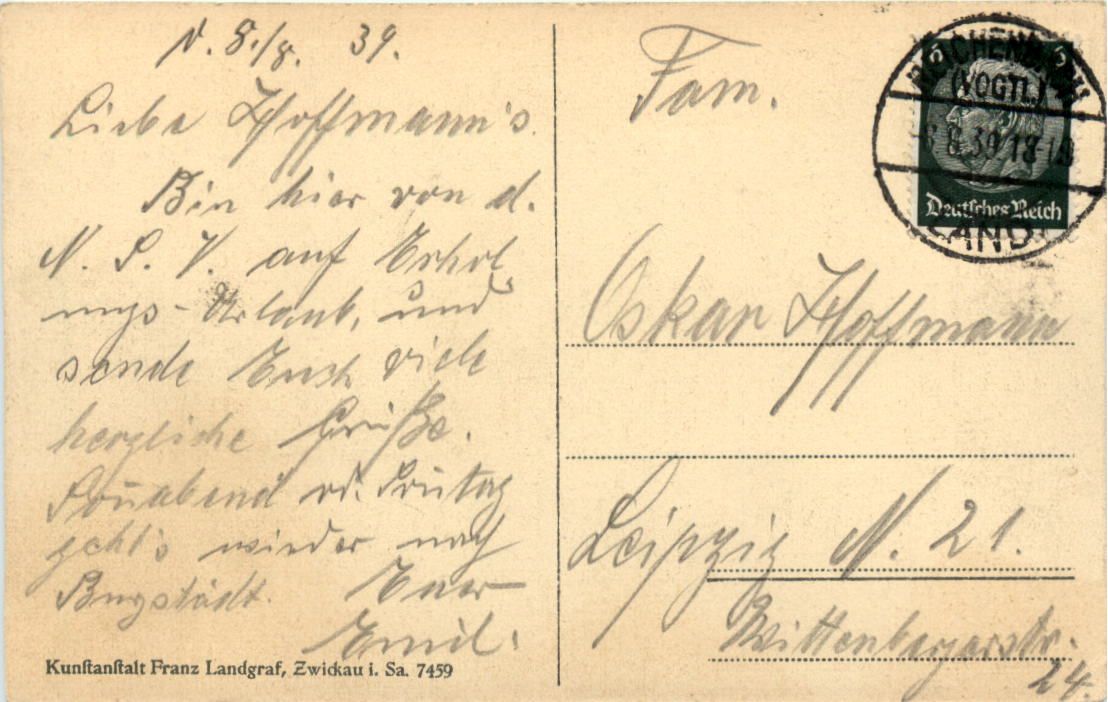 d. 8./8. 39.
Liebe Hoffmann's.
Bin hier von d.
N. S. V. auf Erhol
ungs-Urlaub, und
sende Euch viele
herzliche Grüße.
Sonabend od. Sontag
geht's wieder nach
Burgstädt. Euer
Emil.
Kunstanstalt Franz Landgraf, Zwickau i. Sa. 7459
Fam.
Oskar Hoffmann
Leipzig N. 21.
Wittenbergerstr.
24.
REICHENBACH
(VOGTL.)
8.39 18-19
LAND
6 6
Deutsches Reich